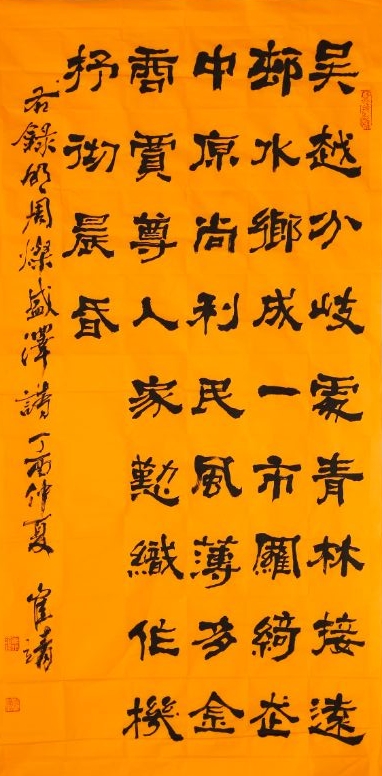 吳越分岐處青林接遠
邨水鄉成一市羅綺走
中原尚利民風薄多金
商賈尊人家勤織作機
杼徹晨昏
右錄明周燦盛澤詩丁酉仲夏 崔靖